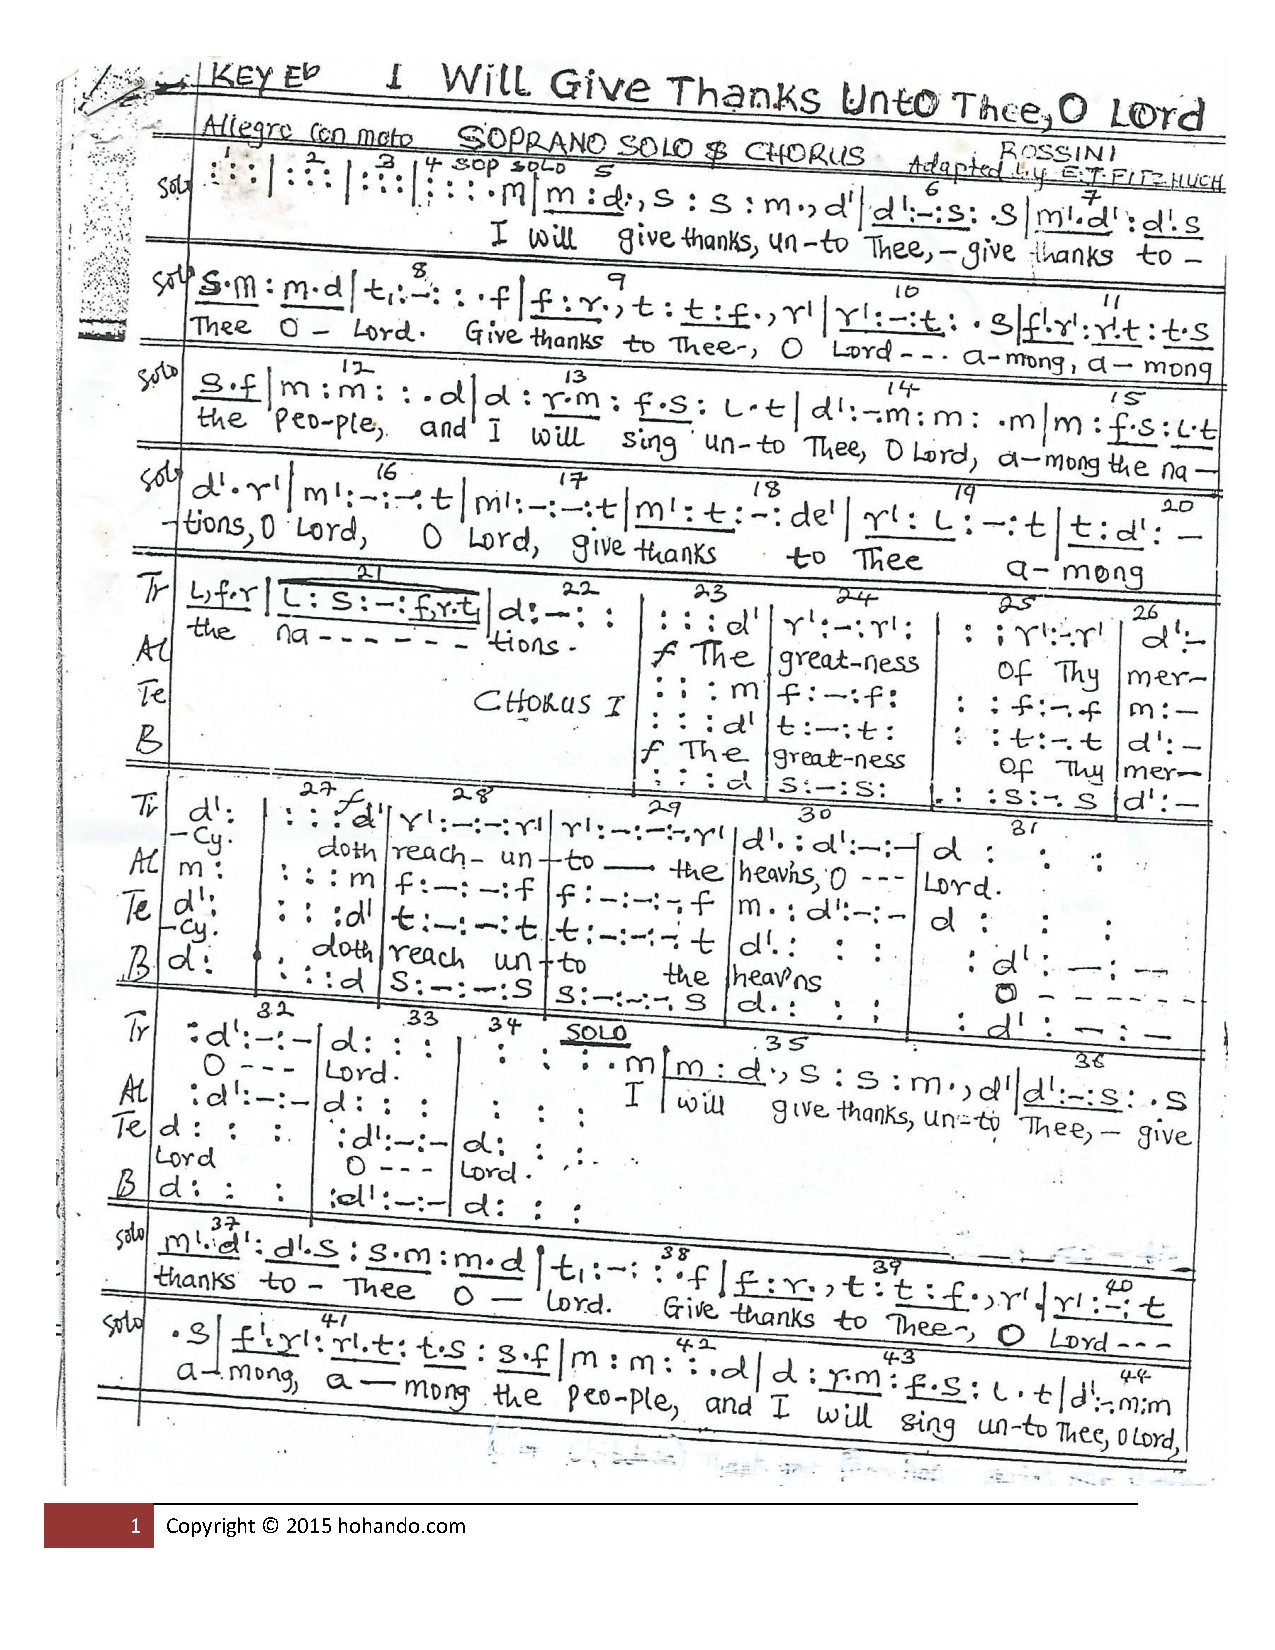 KEY Eb I Will Give Thanks Unto Thee, O Lord
Allegro Con moto SOPRANO SOLO & CHORUS ROSSINI
Adapted by E.T. FITZHUCH
1 2 3 4 SOP SOLO 5 6 7
Solo : : : | : : : | : : : | : : : .m | m : d ., s : s : m ., d' | d' : – : s : . s | m'. d' : d'. s
I will give thanks, un-to Thee, – give thanks to –
8 9 10 11
Solo s.m : m.d | t, : – : : . f | f : r ., t : t : f ., r' | r' : – : t : . s | f'. r' : r'. t : t.s
Thee O – Lord. Give thanks to Thee-, O Lord - - - a-mong, a – mong
12 13 14 15
Solo s.f | m : m : : . d | d : r.m : f.s : l.t | d' : –. m : m : . m | m : f.s : l.t
the Peo-ple, and I will sing un-to Thee, O Lord, a-mong the na –
16 17 18 19 20
Solo d'. r' | m' : – : – : t | m' : – : – : t | m' : t : – : de' | r' : l : – : t | t : d' : –
-tions, O Lord, O Lord, give thanks to Thee a-mong
21 22 23 24 25 26
Tr l, f.r | l : s : – : f, r.t, | d : – : : | : : : d' | r' : – : r' : | : : r' : –. r' | d' : –
the na - - - - - - tions. f The great-ness Of Thy mer–
Al : : : m | f : – : f : | : : f : –. f | m : –
Te CHORUS I : : : d' | t : – : t : | : : t : –. t | d' : –
f The great-ness Of Thy mer–
B : : : d | s : – : s : | : : s : –. s | d' : –
27 28 29 30 31
Tr d' : | : : : f d' | r' : – : – : r' | r' : – : – : –. r' | d'. : d' : – : – | d : : :
-Cy. doth reach- un – to –– the heav'ns, O - - - Lord.
Al m : | : : : m | f : – : – : f | f : – : – : –. f | m . : d' : – : – | d : : :
Te d' : | : : : d' | t : – : – : t | t : – : – : –. t | d'. : : : | : d' : – : –
-Cy. doth reach un – to the heav'ns O - - - - - -
B d : | : : : d | s : – : – : s | s : – : – : –. s | d . : : : | : d' : – : –
32 33 34 SOLO 35 36
Tr : d' : – : – | d : : : | : : : . m | m : d ., s : s : m ., d' | d' : – : s : . s
O - - - Lord. I will give thanks, un-to Thee, – give
Al : d' : – : – | d : : : | : : :
Te d : : : | : d' : – : – | d : : :
Lord O - - - Lord.
B d : : : | : d' : – : – | d : : :
37 38 39 40
Solo m'. d' : d'. s : s.m : m.d | t, : – : : . f | f : r ., t : t : f ., r' | r' : – : t
thanks to – Thee O – Lord. Give thanks to Thee-, O Lord - - -
41 42 43 44
Solo . s | f'. r' : r'. t : t.s : s.f | m : m : : . d | d : r.m : f.s : l . t | d' : –. m : m
a – mong, a – mong the Peo-ple, and I will sing un-to Thee, O Lord,
1 Copyright © 2015 hohando.com